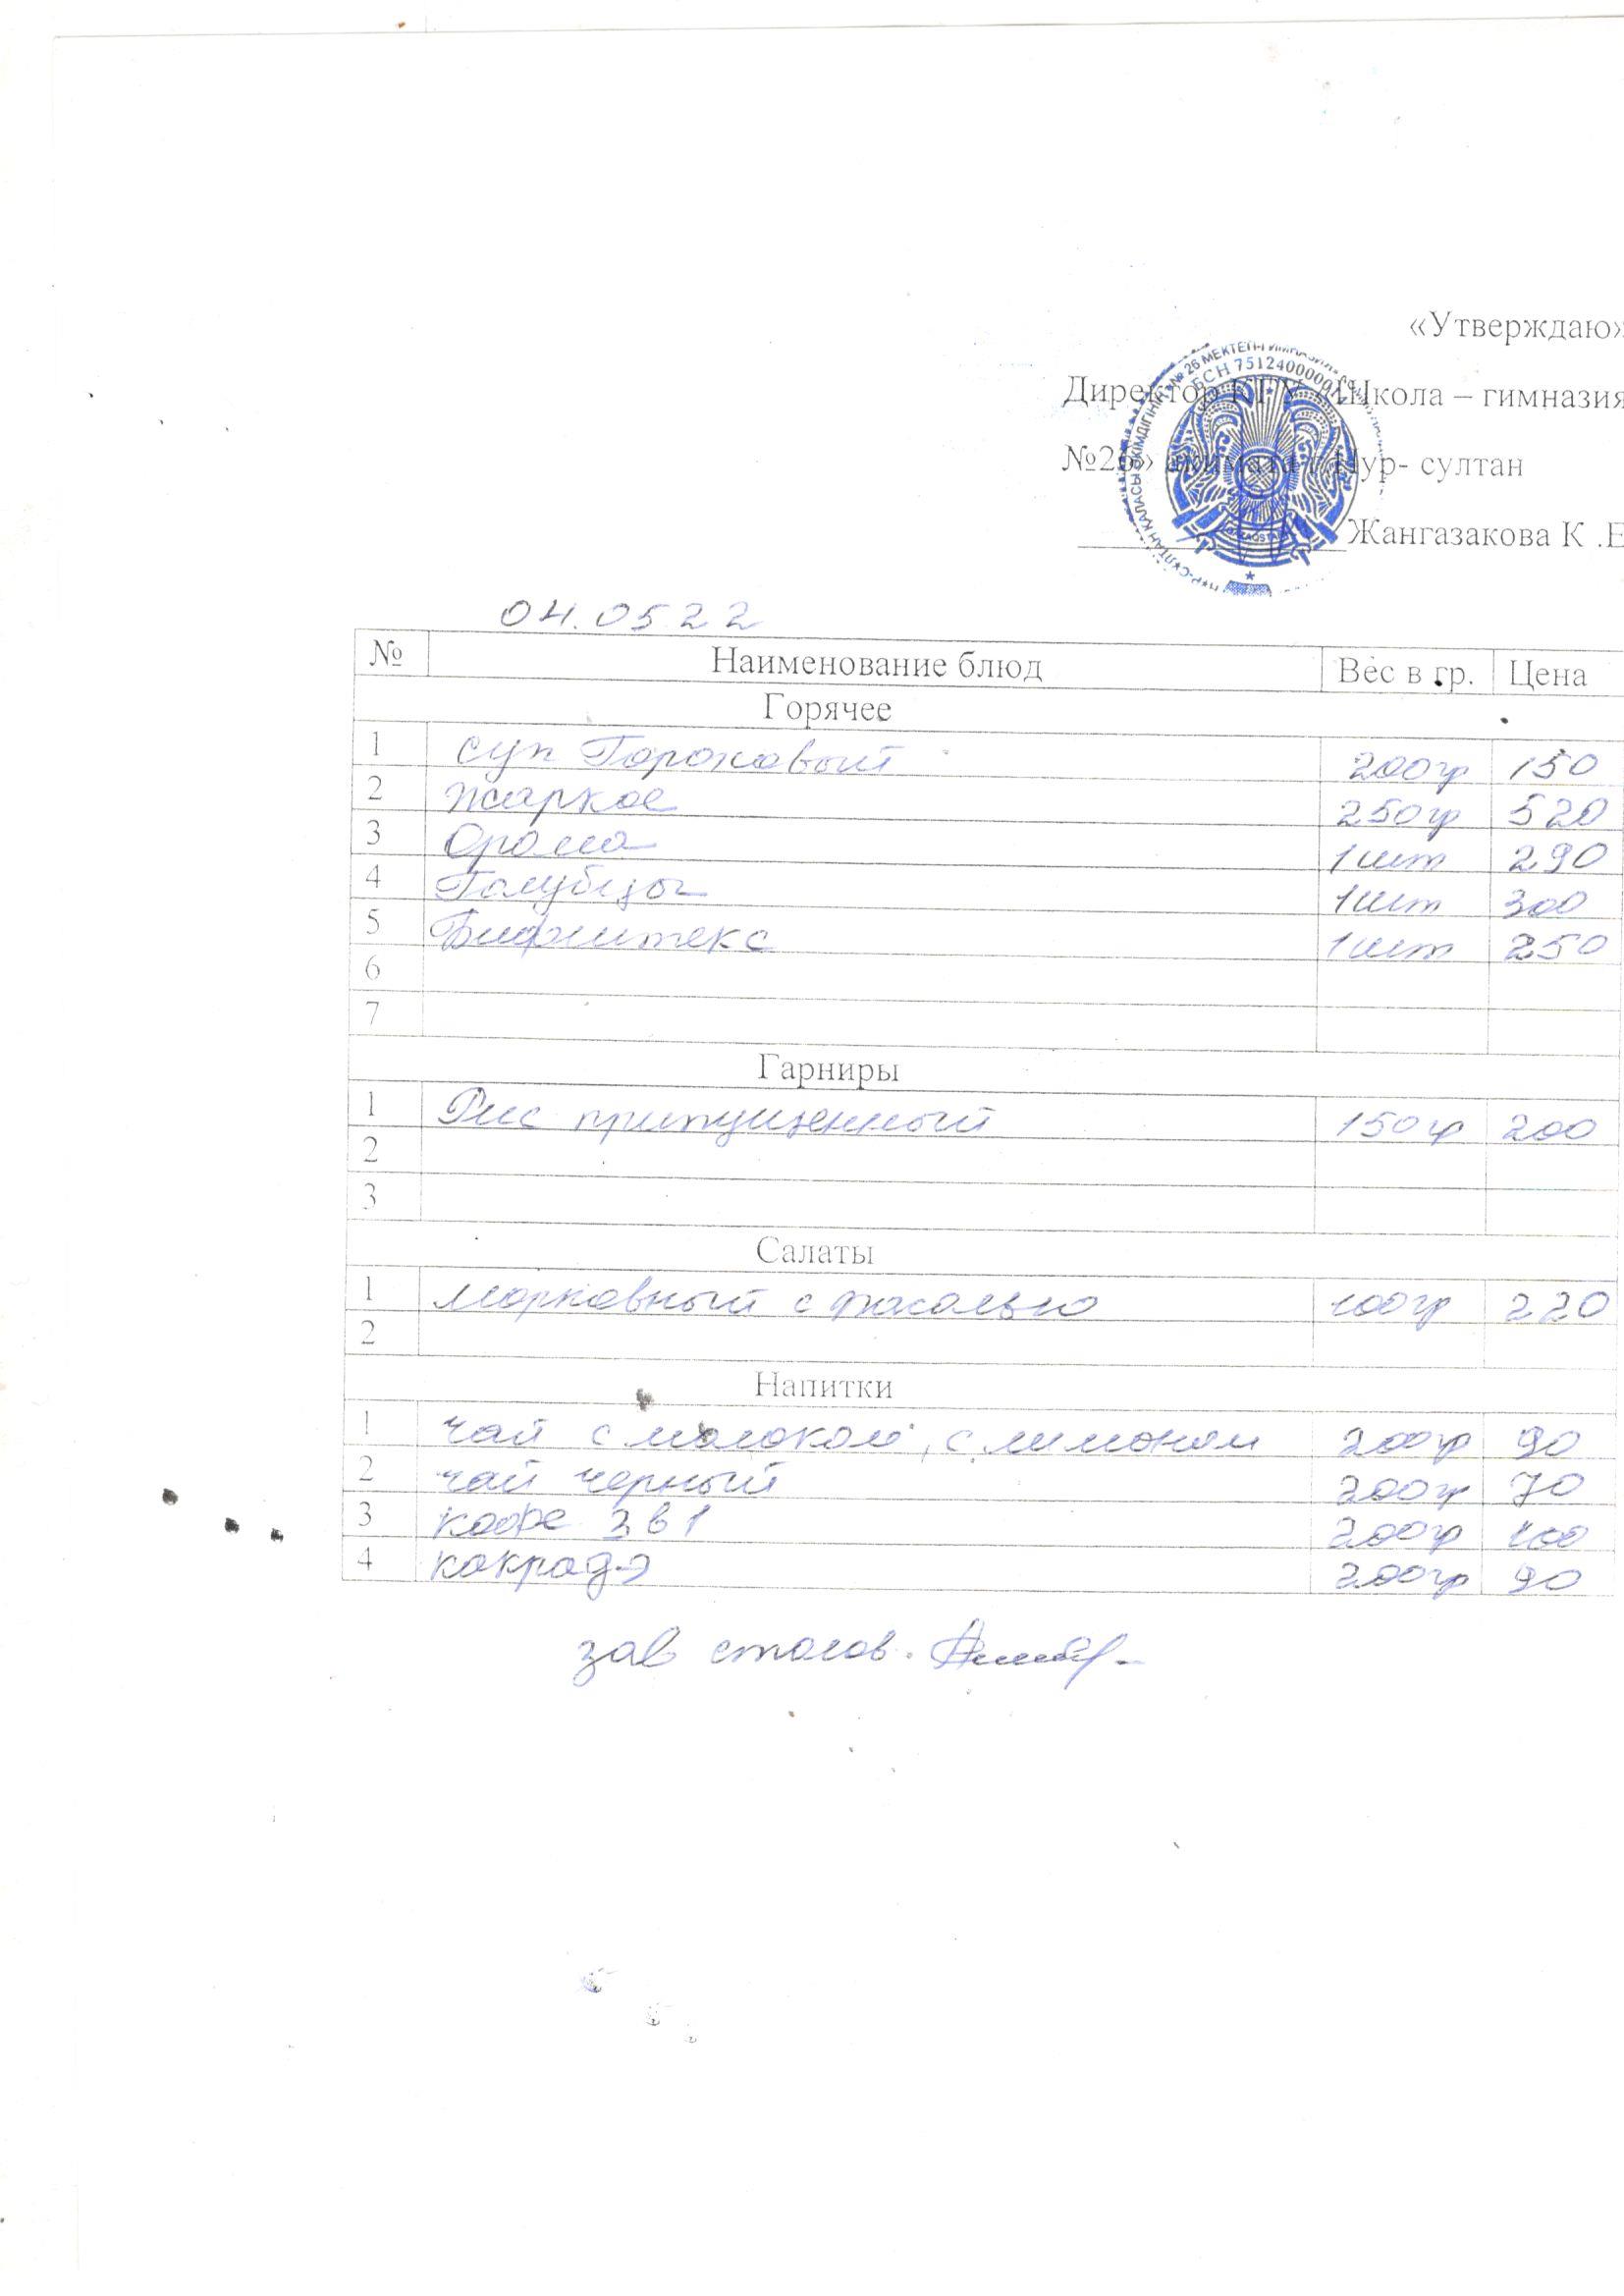 «Утверждаю»
Директор КГУ «Школа – гимназия
№26» акимата г.Нур- султан
Жангазакова К .Е
04.05.22
№ Наименование блюд Вес в гр. Цена
Горячее
1 суп Гороховый 200гр 150
2 Жаркое 250гр 520
3 Орома 1шт 290
4 Голубцы 1шт 300
5 Бифштекс 1шт 250
6
7
Гарниры
1 Рис припущенный 150гр 200
2
3
Салаты
1 Морковный с фасолью 100гр 220
2
Напитки
1 чай с молоком, с лимоном 200гр 90
2 чай черный 200гр 70
3 кофе 3 в 1 200гр 100
4 какрадэ 200гр 90
зав столов.